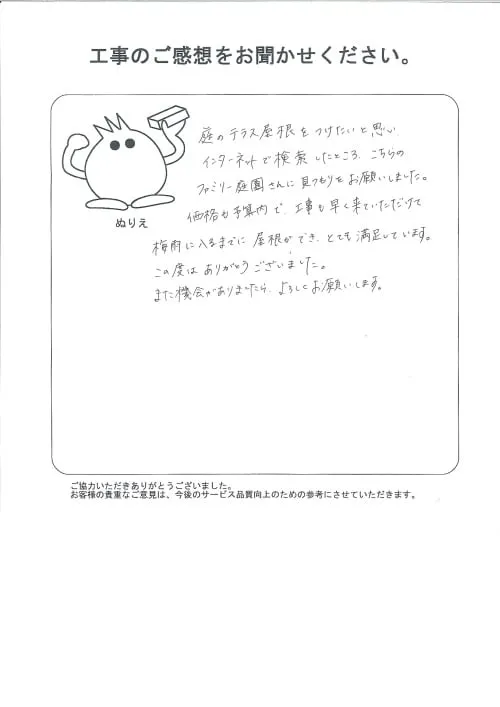 工事のご感想をお聞かせください。
庭のテラス屋根をつけたいと思い
インターネットで検索したところ、こちらの
ファミリー庭園さんに見つもりをお願いしました。
価格も予算内で、工事も早く来ていただけて
梅雨に入るまでに屋根ができ、とても満足しています。
この度はありがとうございました。
また機会がありましたら、よろしくお願いします。
ぬりえ
ご協力いただきありがとうございました。
お客様の貴重なご意見は、今後のサービス品質向上のための参考にさせていただきます。